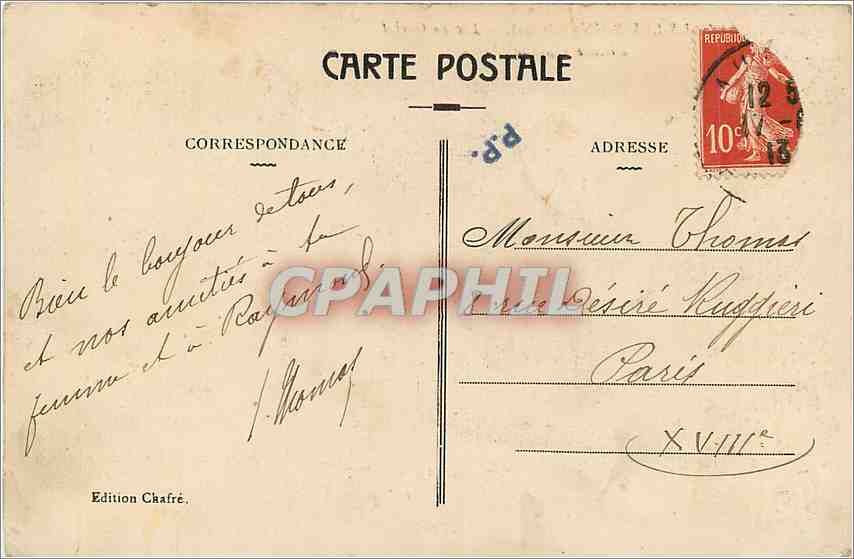 CARTE POSTALE
CORRESPONDANCE
Bien le bonjour de tous,
et nos amitiés à ta
femme et à Raymond.
J. Thomas
Edition Chafré.
P.P.
ADRESSE
Monsieur Thomas
8 rue Désiré Ruggieri
Paris
XVIIIe
REPUBLIQ
10c
12 5
17 -
13
CPAPHIL